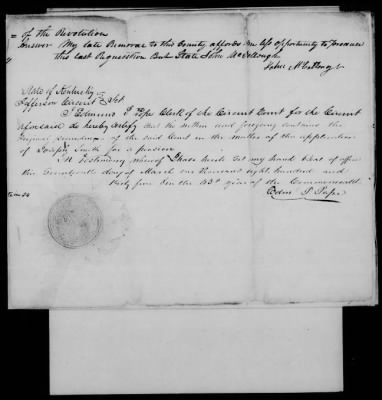 of the Revolution
Answer My late Removal to this County affords me less opportunity to procure
this last Requisition But State John McCollough
John McCollough
State of Kentucky
Jefferson Circuit Sct
I Edmund P Pope Clerk of the Circuit Court for the Circuit
aforesaid do hereby certify that the within and foregoing contains the
original proceedings of the said Court in the matter of the application
of Joseph Smith for a pension
In Testimony whereof I have hereto set my hand & seal of office
this Seventeenth day of March one thousand eight hundred and
thirty five in the 43d year of the Commonwealth
Edm P. Pope